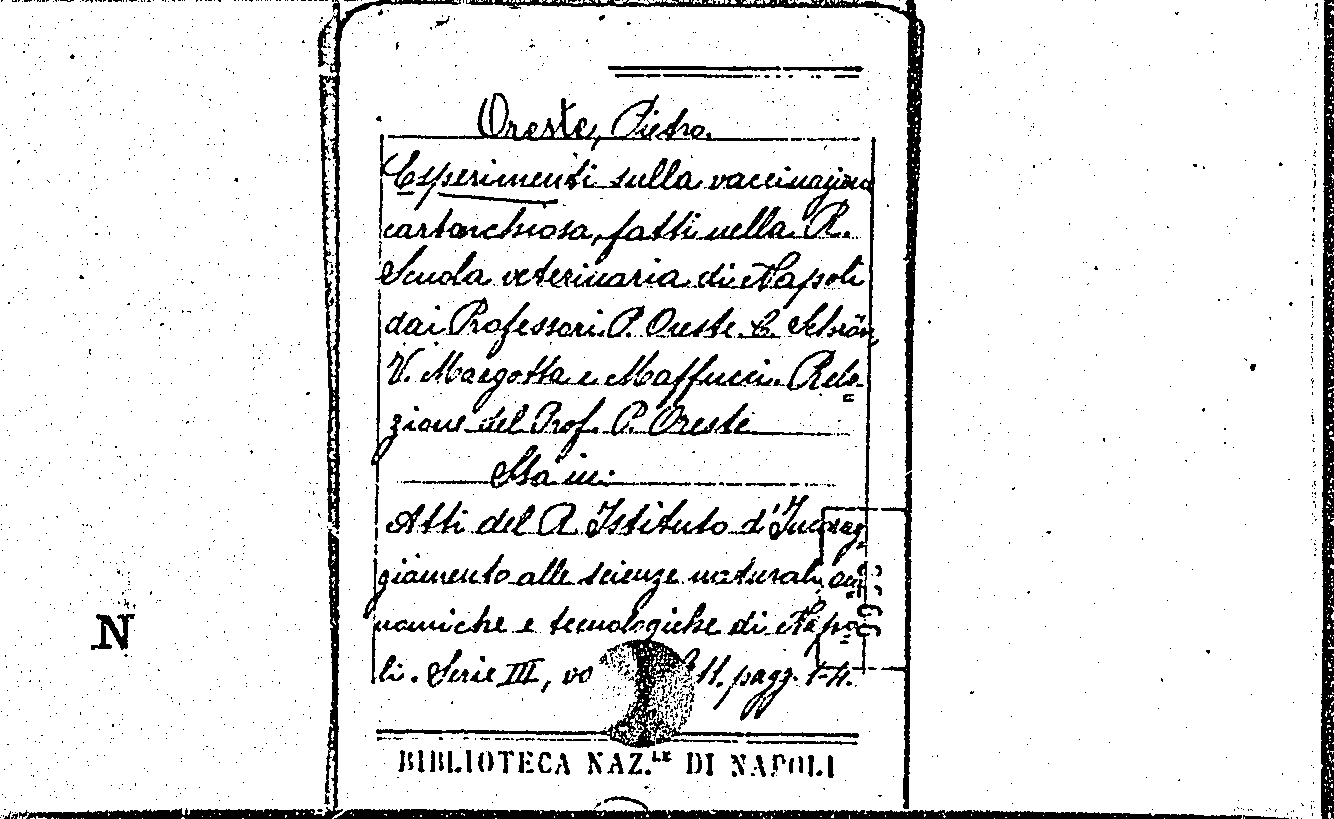 Oreste, Pietro.
Esperimenti sulla vaccinazione
carbonchiosa, fatti nella R.
Scuola veterinaria di Napoli
dai Professori P. Oreste. E.
V. Margotta e Maffucci. Rela-
zione del Prof. P. Oreste
Sta in:
Atti del R Istituto d'Incorag-
giamento alle scienze naturali, eco-
nomiche e tecnologiche di Napo-
li. Serie III, vo 11. pagg. 1-4.
N
BIBLIOTECA NAZ.LE DI NAPOLI